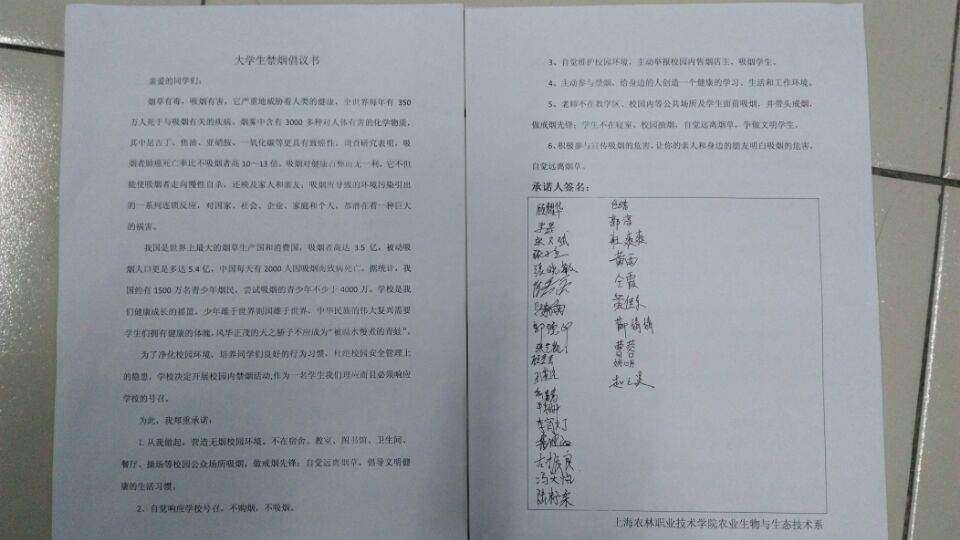 大学生禁烟倡议书
亲爱的同学们：
烟草有毒，吸烟有害，它严重地威胁着人类的健康，全世界每年有 350
万人死于与吸烟有关的疾病。烟雾中含有 3000 多种对人体有害的化学物质，
其中尼古丁、焦油、亚硝胺、一氧化碳等更具有致癌性。调查研究表明，吸
烟者肺癌死亡率比不吸烟者高 10～13 倍。吸烟对健康百弊而无一利，它不但
能使吸烟者走向慢性自杀，还殃及家人和亲友；吸烟所导致的环境污染引出
的一系列连锁反应，对国家、社会、企业、家庭和个人，都潜在着一种巨大
的祸害。
我国是世界上最大的烟草生产国和消费国，吸烟者高达 3.5 亿，被动吸
烟人口更是多达 5.4 亿，中国每天有 2000 人因吸烟而致病死亡。据统计，我
国约有 1500 万名青少年烟民，尝试吸烟的青少年不少于 4000 万。学校是我
们健康成长的摇篮，少年雄于世界则国雄于世界，中华民族的伟大复兴需要
学生们拥有健康的体魄，风华正茂的天之骄子不应成为“被温水慢煮的青蛙”。
为了净化校园环境，培养同学们良好的行为习惯，杜绝校园安全管理上
的隐患，学校决定开展校园内禁烟活动，作为一名学生我们理应而且必须响应
学校的号召。
为此，我郑重承诺：
1.从我做起，营造无烟校园环境。不在宿舍、教室、图书馆、卫生间、
餐厅、操场等校园公众场所吸烟，做戒烟先锋；自觉远离烟草，倡导文明健
康的生活习惯。
2、自觉响应学校号召，不购烟，不吸烟。
3、自觉维护校园环境，主动举报校园内售烟店主、吸烟学生。
4、主动参与禁烟，给身边的人创造一个健康的学习、生活和工作环境。
5、老师不在教学区、校园内等公共场所及学生面前吸烟，并带头戒烟，
做戒烟先锋；学生不在寝室、校园抽烟，自觉远离烟草，争做文明学生。
6、积极参与宣传吸烟的危害，让你的亲人和身边的朋友明白吸烟的危害，
自觉远离烟草。
承诺人签名：
李育灯
古振良
冯文怡
郭蓉
黄雨
仝霞
曹蓉
上海农林职业技术学院农业生物与生态技术系